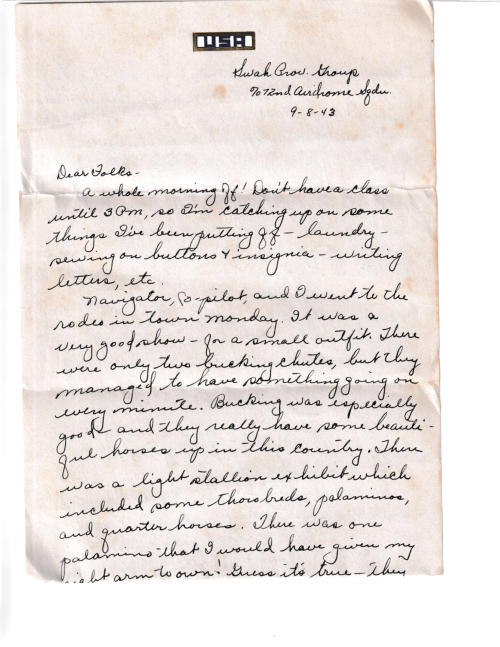 USA
Swak Prov. Group
% 72nd Airdrome Sqdn.
9-8-43
Dear Folks-
A whole morning off! Don't have a class
until 3 PM, so I'm catching up on some
things I've been putting off - laundry -
sewing on buttons & insignia - writing
letters, etc.
Navigator, Co-pilot, and I went to the
rodeo in town Monday. It was a
very good show - for a small outfit. There
were only two bucking chutes, but they
managed to have something going on
every minute. Bucking was especially
good - and they really have some beauti-
ful horses up in this country. There
was a light stallion exhibit which
included some thorobreds, palaminos,
and quarter horses. There was one
palamino that I would have given my
right arm to own! Guess it's true - They